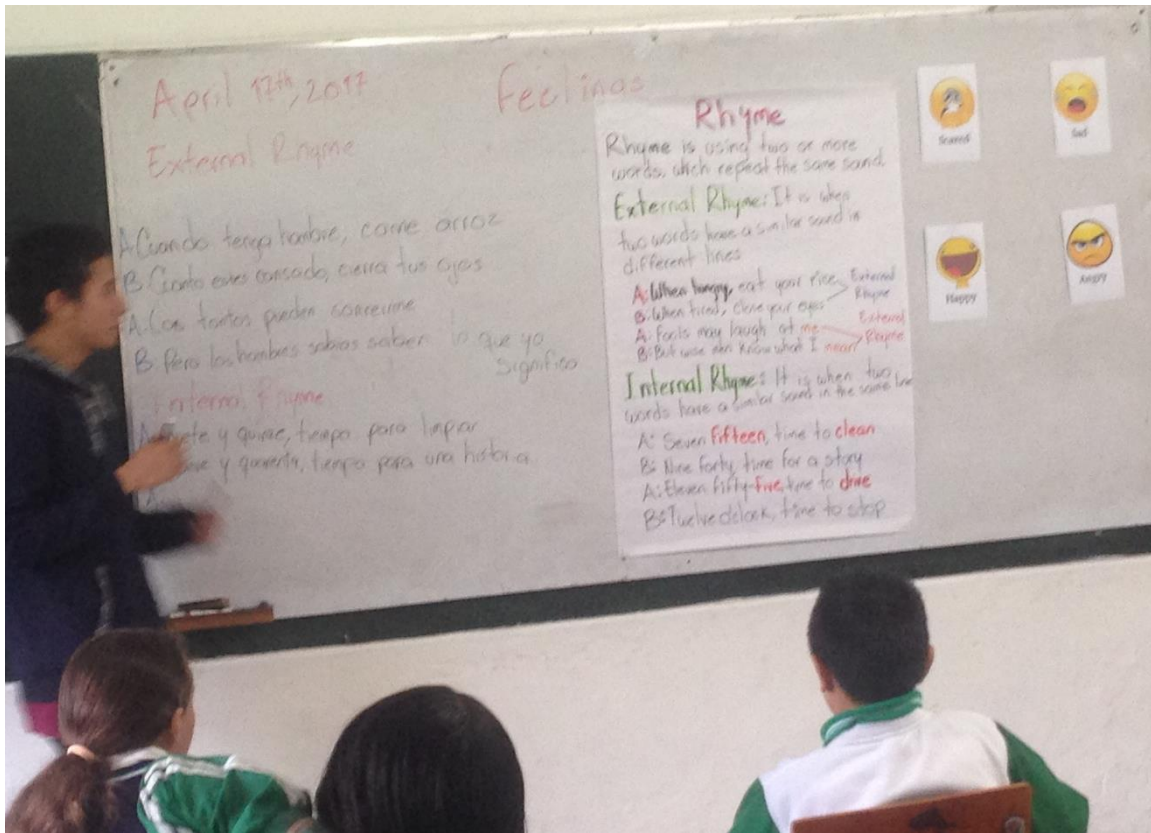 April 17th, 2017
Feelings
External Rhyme
A Cuando tenga hambre, come arroz
B Cuando estes cansado, cierra tus ojos
A. Los tontos pueden
B Pero los hombres sabios saben lo que yo
significo
Internal Rhyme
y quince, tiempo para limpiar
y quarenta, tiempo para una historia
A
Rhyme
Rhyme is using two or more
words, which repeat the same sound
External Rhyme: It is when
two words have a similar sound in
different lines
A: When hungry, eat your rice
B: When tired, close your eyes
External
Rhyme
A: Fools may laugh at me
B: But wise men know what I mean
External
Rhyme
Internal Rhyme: It is when two
words have a similar sound in the same line
A: Seven fifteen, time to clean
B: Nine forty, time for a story
A: Eleven fifty-five, time to drive
B: Twelve o'clock, time to stop
Scared
Sad
Happy
Angry